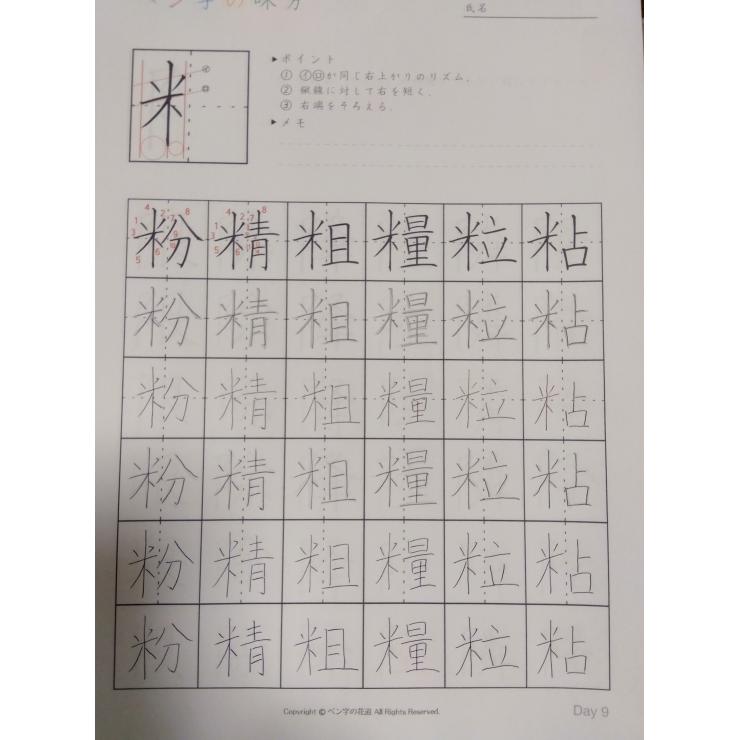 ペン字の味方
氏名
米
イ
ロ
▶ポイント
① イロが同じ右上がりのリズム.
② 縦線に対して右を短く.
③ 右端をそろえる.
▶メモ
粉 精 粗 糧 粒 粘
粉 精 粗 糧 粒 粘
粉 精 粗 糧 粒 粘
粉 精 粗 糧 粒 粘
粉 精 粗 糧 粒 粘
粉 精 粗 糧 粒 粘
Copyright © ペン字の花道 All Rights Reserved.
Day 9